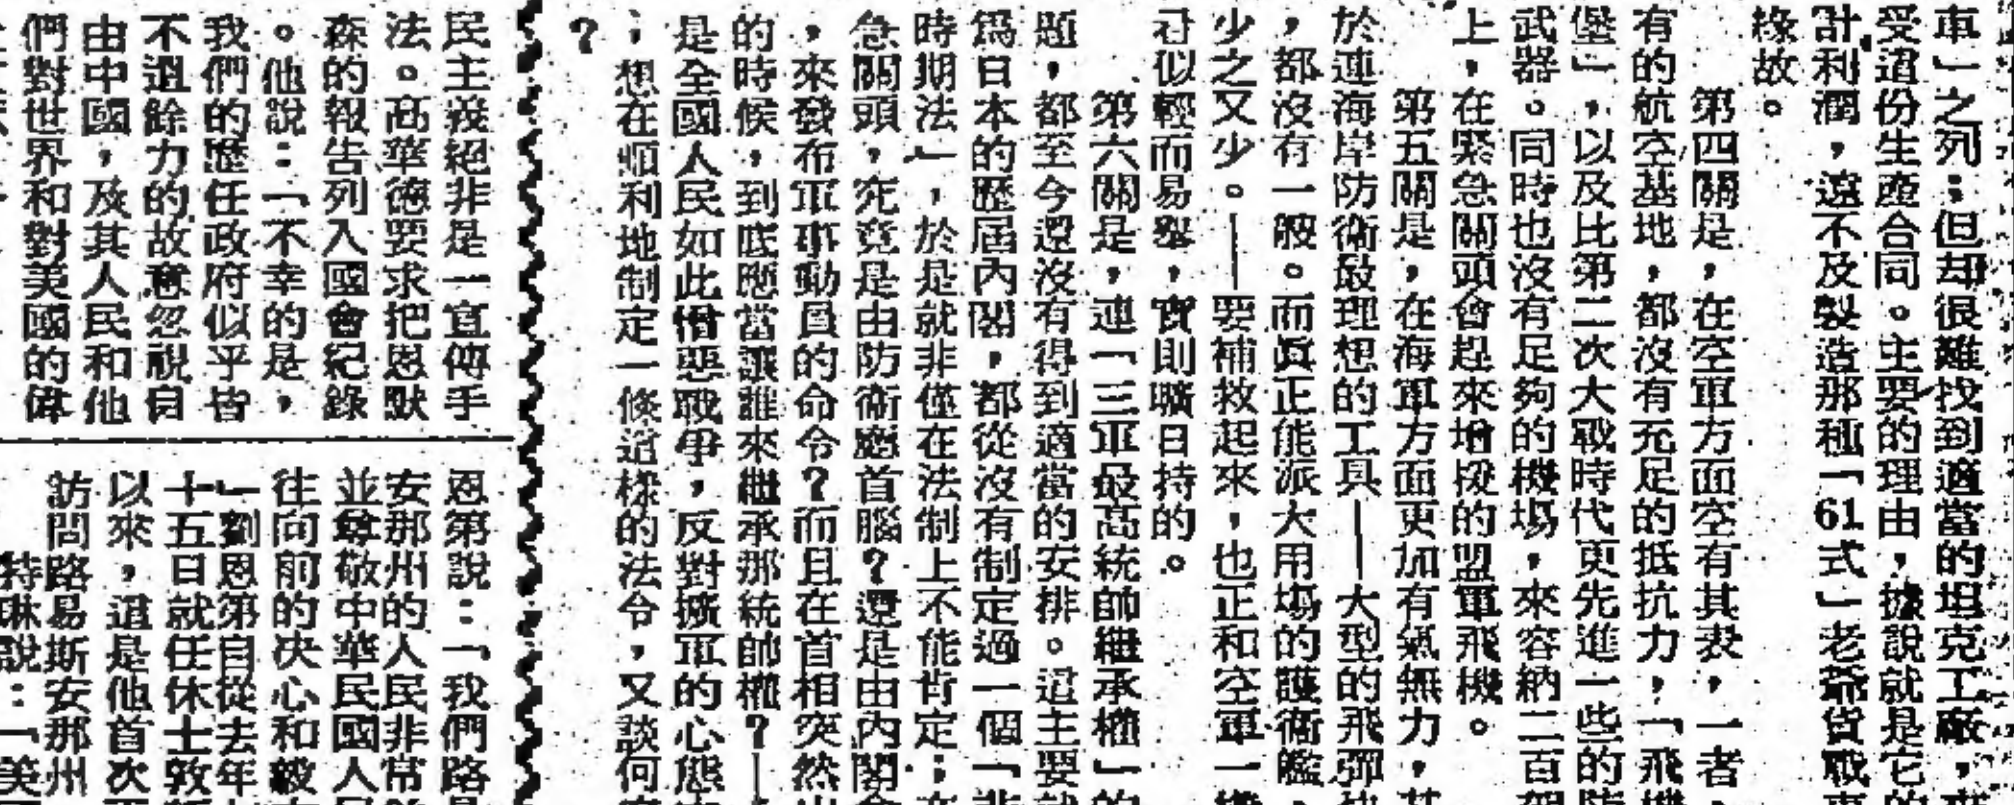 車」之列；但却很難找到適當的坦克工廠，
受這份生產合同。主要的理由，據說就是它的
計利潤，遠不及製造那種「61式」老爺貨戰車
緣故。
第四關是，在空軍方面空有其表，一者、
有的航空基地，都沒有充足的抵抗力，「飛機
堡」，以及比第二次大戰時代更先進一些的防
武器。同時也沒有足夠的機場，來容納二百架
上，在緊急關頭會趕來增援的盟軍飛機。
第五關是，在海軍方面更加有氣無力，其
於連海岸防衛最理想的工具——大型的飛彈快
，都沒有一艘。而眞正能派大用場的護衞艦、
少之又少。——要補救起來，也正和空軍一樣
看似輕而易舉，實則曠日持的。
第六關是，連「三軍最高統帥繼承權」的
題，都至今還沒有得到適當的安排。這主要就
爲日本的歷屆內閣，都從沒有制定過一個「非
時期法」，於是就非僅在法制上不能肯定；在
急關頭，究竟是由防衞廳首腦？還是由內閣會
，來發布軍事動員的命令？而且在首相突然出
的時候，到底應當讓誰來繼承那統帥權？—
是全國人民如此憎惡戰爭，反對擴軍的心態
；想在順利地制定一條這樣的法令，又談何
？
民主義絕非是一宣傳手
法。高華德要求把恩默
森的報告列入國會紀錄
。他說：「不幸的是，
我們的歷任政府似乎皆
不遺餘力的故意忽視自
由中國，及其人民和他
們對世界和對美國的偉
恩第說：「我們路易
安那州的人民非常
並尊敬中華民國人民
往向前的決心和毅
」劉恩第自從去年
十五日就任休士敦
以來，這是他首次
訪問路易斯安那州
特琳說：「美